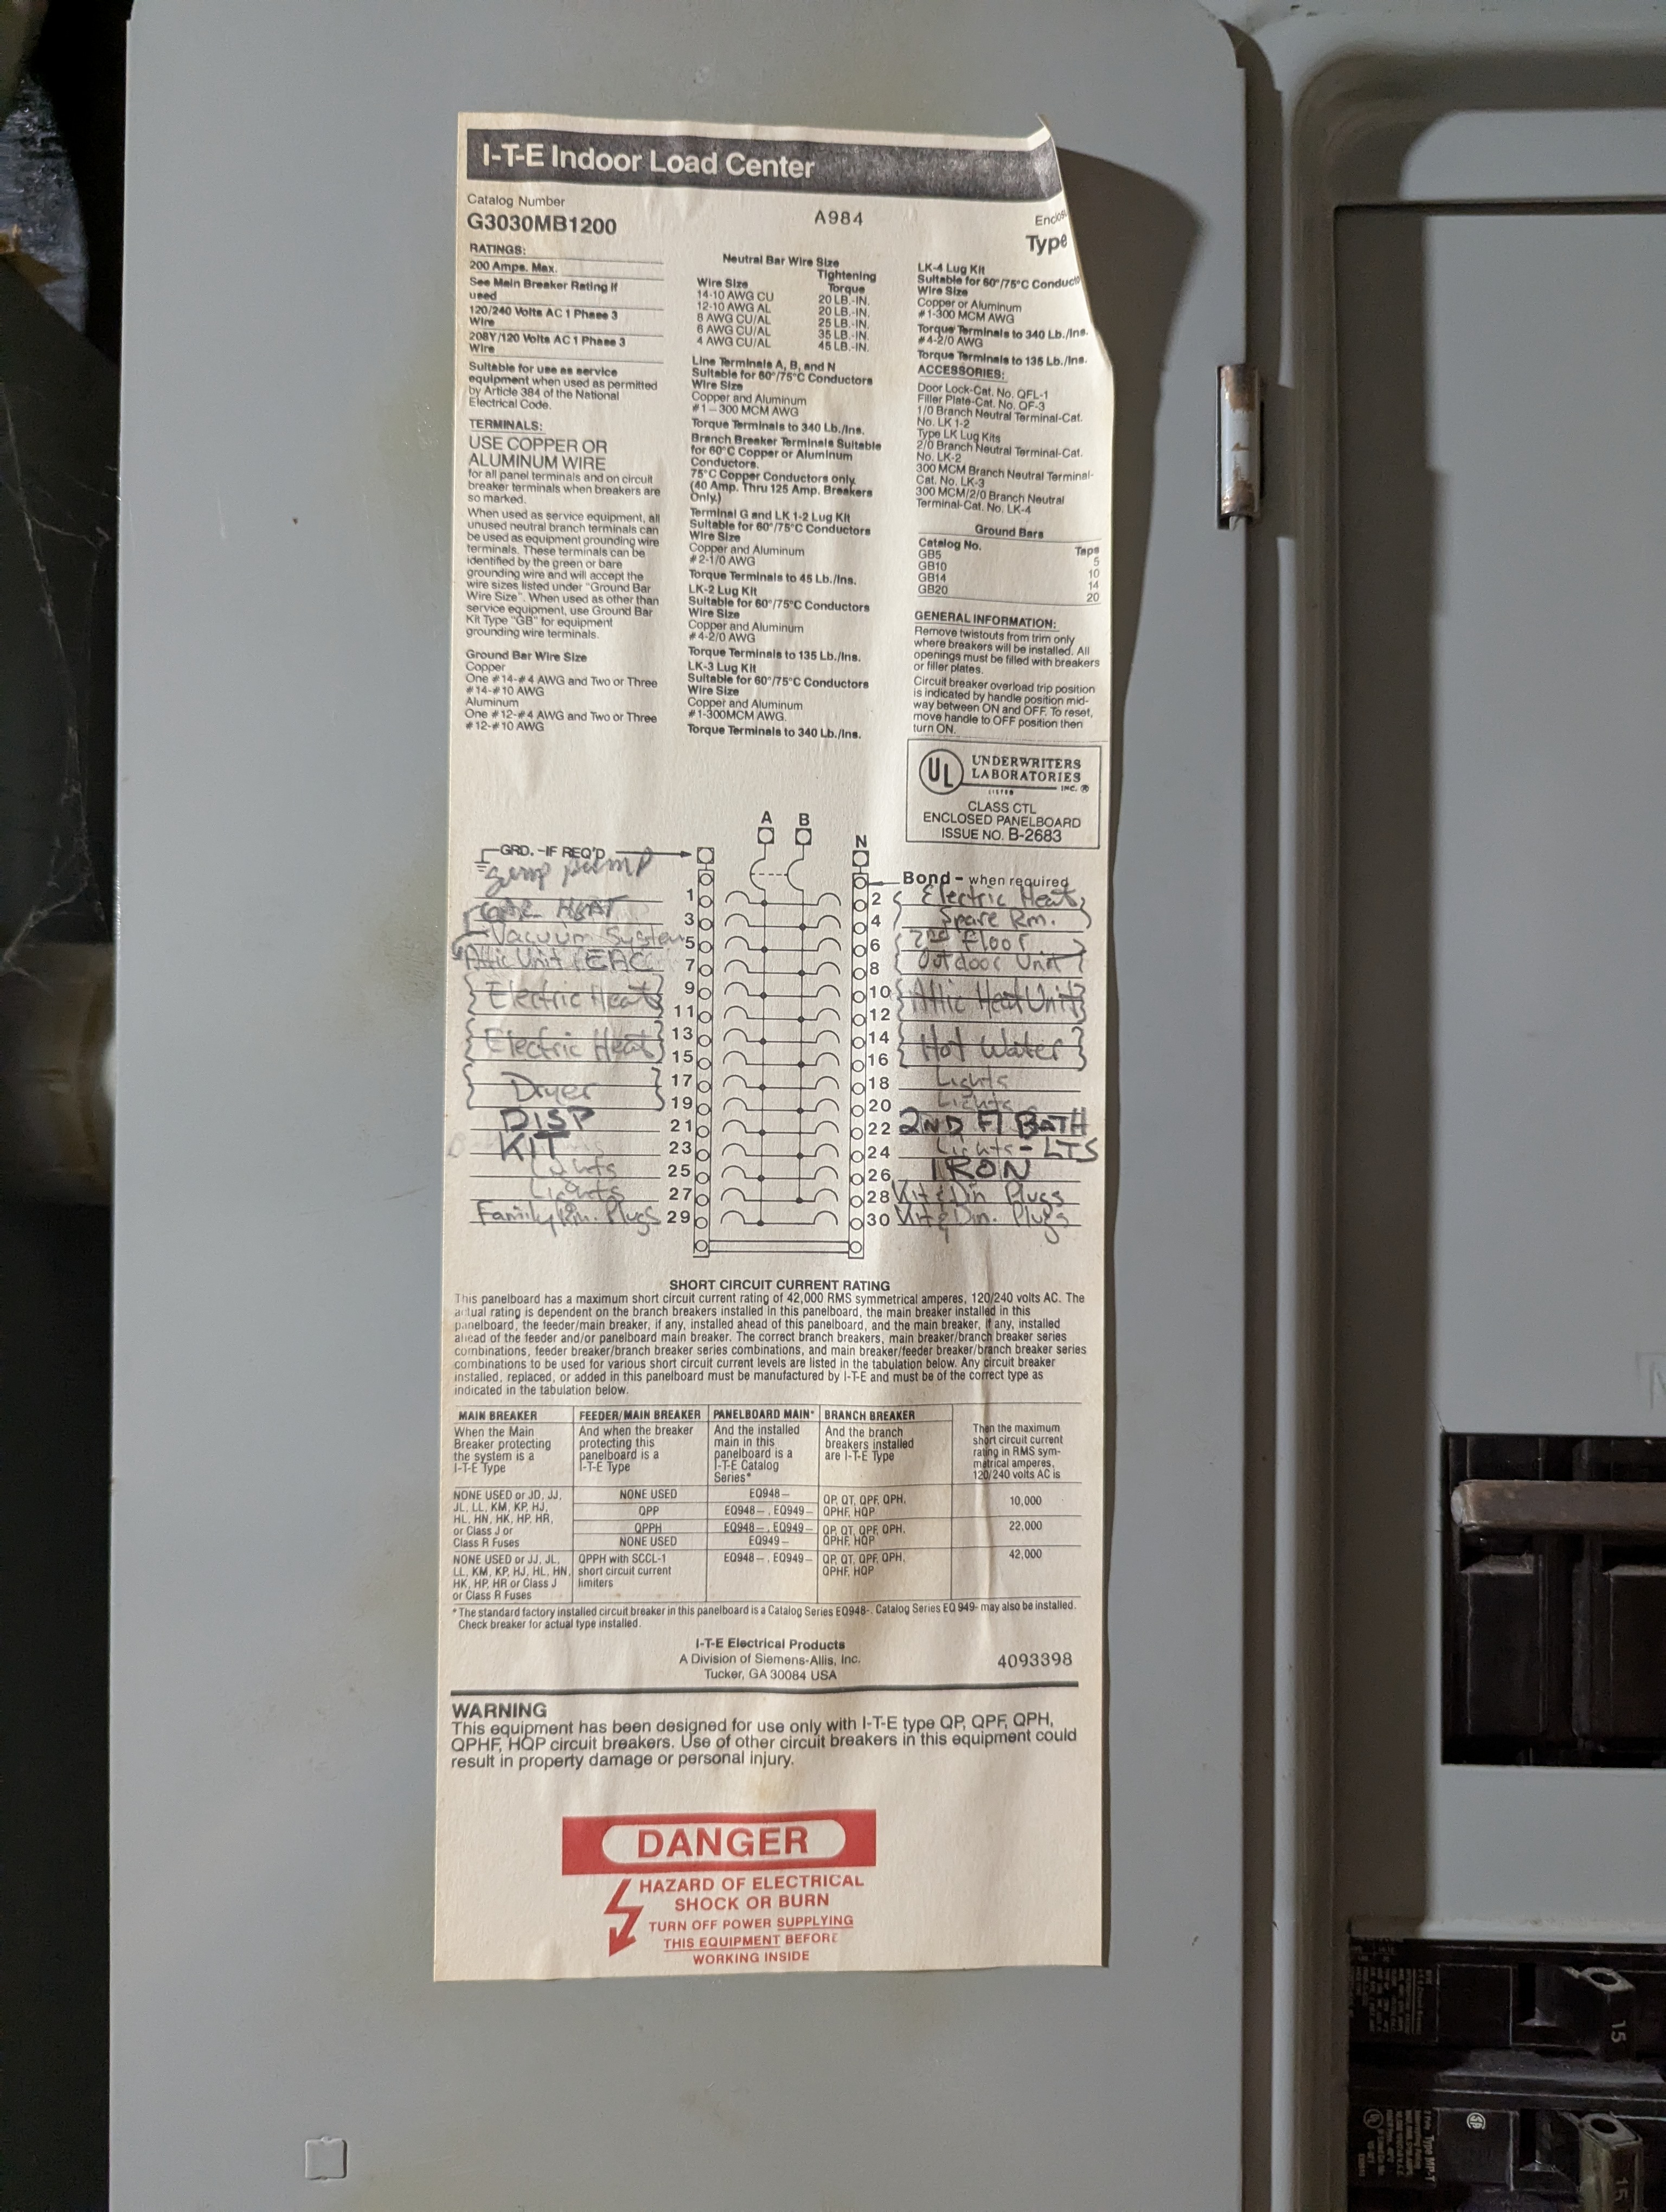 I-T-E Indoor Load Center
Catalog Number
G3030MB1200
A984
Type
RATINGS:
200 Amps. Max.
See Main Breaker Rating if
used
120/240 Volts AC 1 Phase 3
Wire
208Y/120 Volts AC 1 Phase 3
Wire
Suitable for use as service
equipment when used as permitted
by Article 384 of the National
Electrical Code.
TERMINALS:
USE COPPER OR
ALUMINUM WIRE
for all panel terminals and on circuit
breaker terminals when breakers are
so marked.
When used as service equipment, all
unused neutral branch terminals can
be used as equipment grounding wire
terminals. These terminals can be
identified by the green or bare
grounding wire and will accept the
wire sizes listed under "Ground Bar
Wire Size". When used as other than
service equipment, use Ground Bar
Kit Type "GB" for equipment
grounding wire terminals.
Ground Bar Wire Size
Copper
One #14-#4 AWG and Two or Three
#14-#10 AWG
Aluminum
One #12-#4 AWG and Two or Three
#12-#10 AWG
Neutral Bar Wire Size
Wire Size Tightening Torque
14-10 AWG CU 20 LB.-IN.
12-10 AWG AL 20 LB.-IN.
8 AWG CU/AL 25 LB.-IN.
6 AWG CU/AL 35 LB.-IN.
4 AWG CU/AL 45 LB.-IN.
Line Terminals A, B, and N
Suitable for 60°/75°C Conductors
Wire Size
Copper and Aluminum
#1–300 MCM AWG
Torque Terminals to 340 Lb./Ins.
Branch Breaker Terminals Suitable
for 60°C Copper or Aluminum
Conductors.
75°C Copper Conductors only
(40 Amp. Thru 125 Amp. Breakers
Only.)
Terminal G and LK 1-2 Lug Kit
Suitable for 60°/75°C Conductors
Wire Size
Copper and Aluminum
#2-1/0 AWG
Torque Terminals to 45 Lb./Ins.
LK-2 Lug Kit
Suitable for 60°/75°C Conductors
Wire Size
Copper and Aluminum
#4-2/0 AWG
Torque Terminals to 135 Lb./Ins.
LK-3 Lug Kit
Suitable for 60°/75°C Conductors
Wire Size
Copper and Aluminum
#1-300MCM AWG
Torque Terminals to 340 Lb./Ins.
LK-4 Lug Kit
Suitable for 60°/75°C
Wire Size
Copper or Aluminum
#1-300 MCM AWG
Torque Terminals to 340 Lb./Ins.
#4-2/0 AWG
Torque Terminals to 135 Lb./Ins.
ACCESSORIES:
Door Lock-Cat. No. QFL-1
Filler Plate-Cat. No. QF-3
1/0 Branch Neutral Terminal-Cat.
No. LK 1-2
Type LK Lug Kits
2/0 Branch Neutral Terminal-Cat.
No. LK-2
300 MCM Branch Neutral Terminal-
Cat. No. LK-3
300 MCM/2/0 Branch Neutral
Terminal-Cat. No. LK-4
Ground Bars
Catalog No. Taps
GB5 5
GB10 10
GB14 14
GB20 20
GENERAL INFORMATION:
Remove twistouts from trim only
where breakers will be installed. All
openings must be filled with breakers
or filler plates.
Circuit breaker overload trip position
is indicated by handle position mid-
way between ON and OFF. To reset,
move handle to OFF position then
turn ON.
UL
UNDERWRITERS
LABORATORIES
INC. ®
LISTED
CLASS CTL
ENCLOSED PANELBOARD
ISSUE NO. B-2683
A B N
GRD.-IF REQ'D
Bond - when required
pump 1 2 Electric Heat
HEAT 3 4 Spare Rm.
Vacuum System 5 6 2nd Floor
Attic Unit EAC 7 8 Outdoor Unit
Electric Heat 9 11 10 12 Attic Heat Unit
Electric Heat 13 15 14 16 Hot Water
Dryer 17 19 18 Lights
20 Lights
DISP 21 22 2ND Fl BATH
KIT 23 24 Lights - LTS
Lights 25 26 IRON
Lights 27 28 Kit & Din Plugs
Family Rm. Plugs 29 30 Kit & Din. Plugs
SHORT CIRCUIT CURRENT RATING
This panelboard has a maximum short circuit current rating of 42,000 RMS symmetrical amperes, 120/240 volts AC. The
actual rating is dependent on the branch breakers installed in this panelboard, the main breaker installed in this
panelboard, the feeder/main breaker, if any, installed ahead of this panelboard, and the main breaker, if any, installed
ahead of the feeder and/or panelboard main breaker. The correct branch breakers, main breaker/branch breaker series
combinations, feeder breaker/branch breaker series combinations, and main breaker/feeder breaker/branch breaker series
combinations to be used for various short circuit current levels are listed in the tabulation below. Any circuit breaker
installed, replaced, or added in this panelboard must be manufactured by I-T-E and must be of the correct type as
indicated in the tabulation below.
MAIN BREAKER
When the Main
Breaker protecting
the system is a
I-T-E Type
FEEDER/MAIN BREAKER
And when the breaker
protecting this
panelboard is a
I-T-E Type
PANELBOARD MAIN*
And the installed
main in this
panelboard is a
I-T-E Catalog
Series*
BRANCH BREAKER
And the branch
breakers installed
are I-T-E Type
Then the maximum
short circuit current
rating in RMS sym-
metrical amperes,
120/240 volts AC is
NONE USED or JD, JJ,
JL, LL, KM, KP, HJ,
HL, HN, HK, HP, HR,
or Class J or
Class R Fuses
NONE USED EQ948–
QPP EQ948–, EQ949–
QP, QT, QPF, QPH,
QPHF, HQP
10,000
QPPH EQ948–, EQ949–
NONE USED EQ949–
QP, QT, QPF, QPH,
QPHF, HQP
22,000
NONE USED or JJ, JL,
LL, KM, KP, HJ, HL, HN,
HK, HP, HR or Class J
or Class R Fuses
QPPH with SCCL-1
short circuit current
limiters
EQ948–, EQ949–
QP, QT, QPF, QPH,
QPHF, HQP
42,000
*The standard factory installed circuit breaker in this panelboard is a Catalog Series EQ948-. Catalog Series EQ 949- may also be installed.
Check breaker for actual type installed.
I-T-E Electrical Products
A Division of Siemens-Allis, Inc.
Tucker, GA 30084 USA
4093398
WARNING
This equipment has been designed for use only with I-T-E type QP, QPF, QPH,
QPHF, HQP circuit breakers. Use of other circuit breakers in this equipment could
result in property damage or personal injury.
DANGER
HAZARD OF ELECTRICAL
SHOCK OR BURN
TURN OFF POWER SUPPLYING
THIS EQUIPMENT BEFORE
WORKING INSIDE
15
15